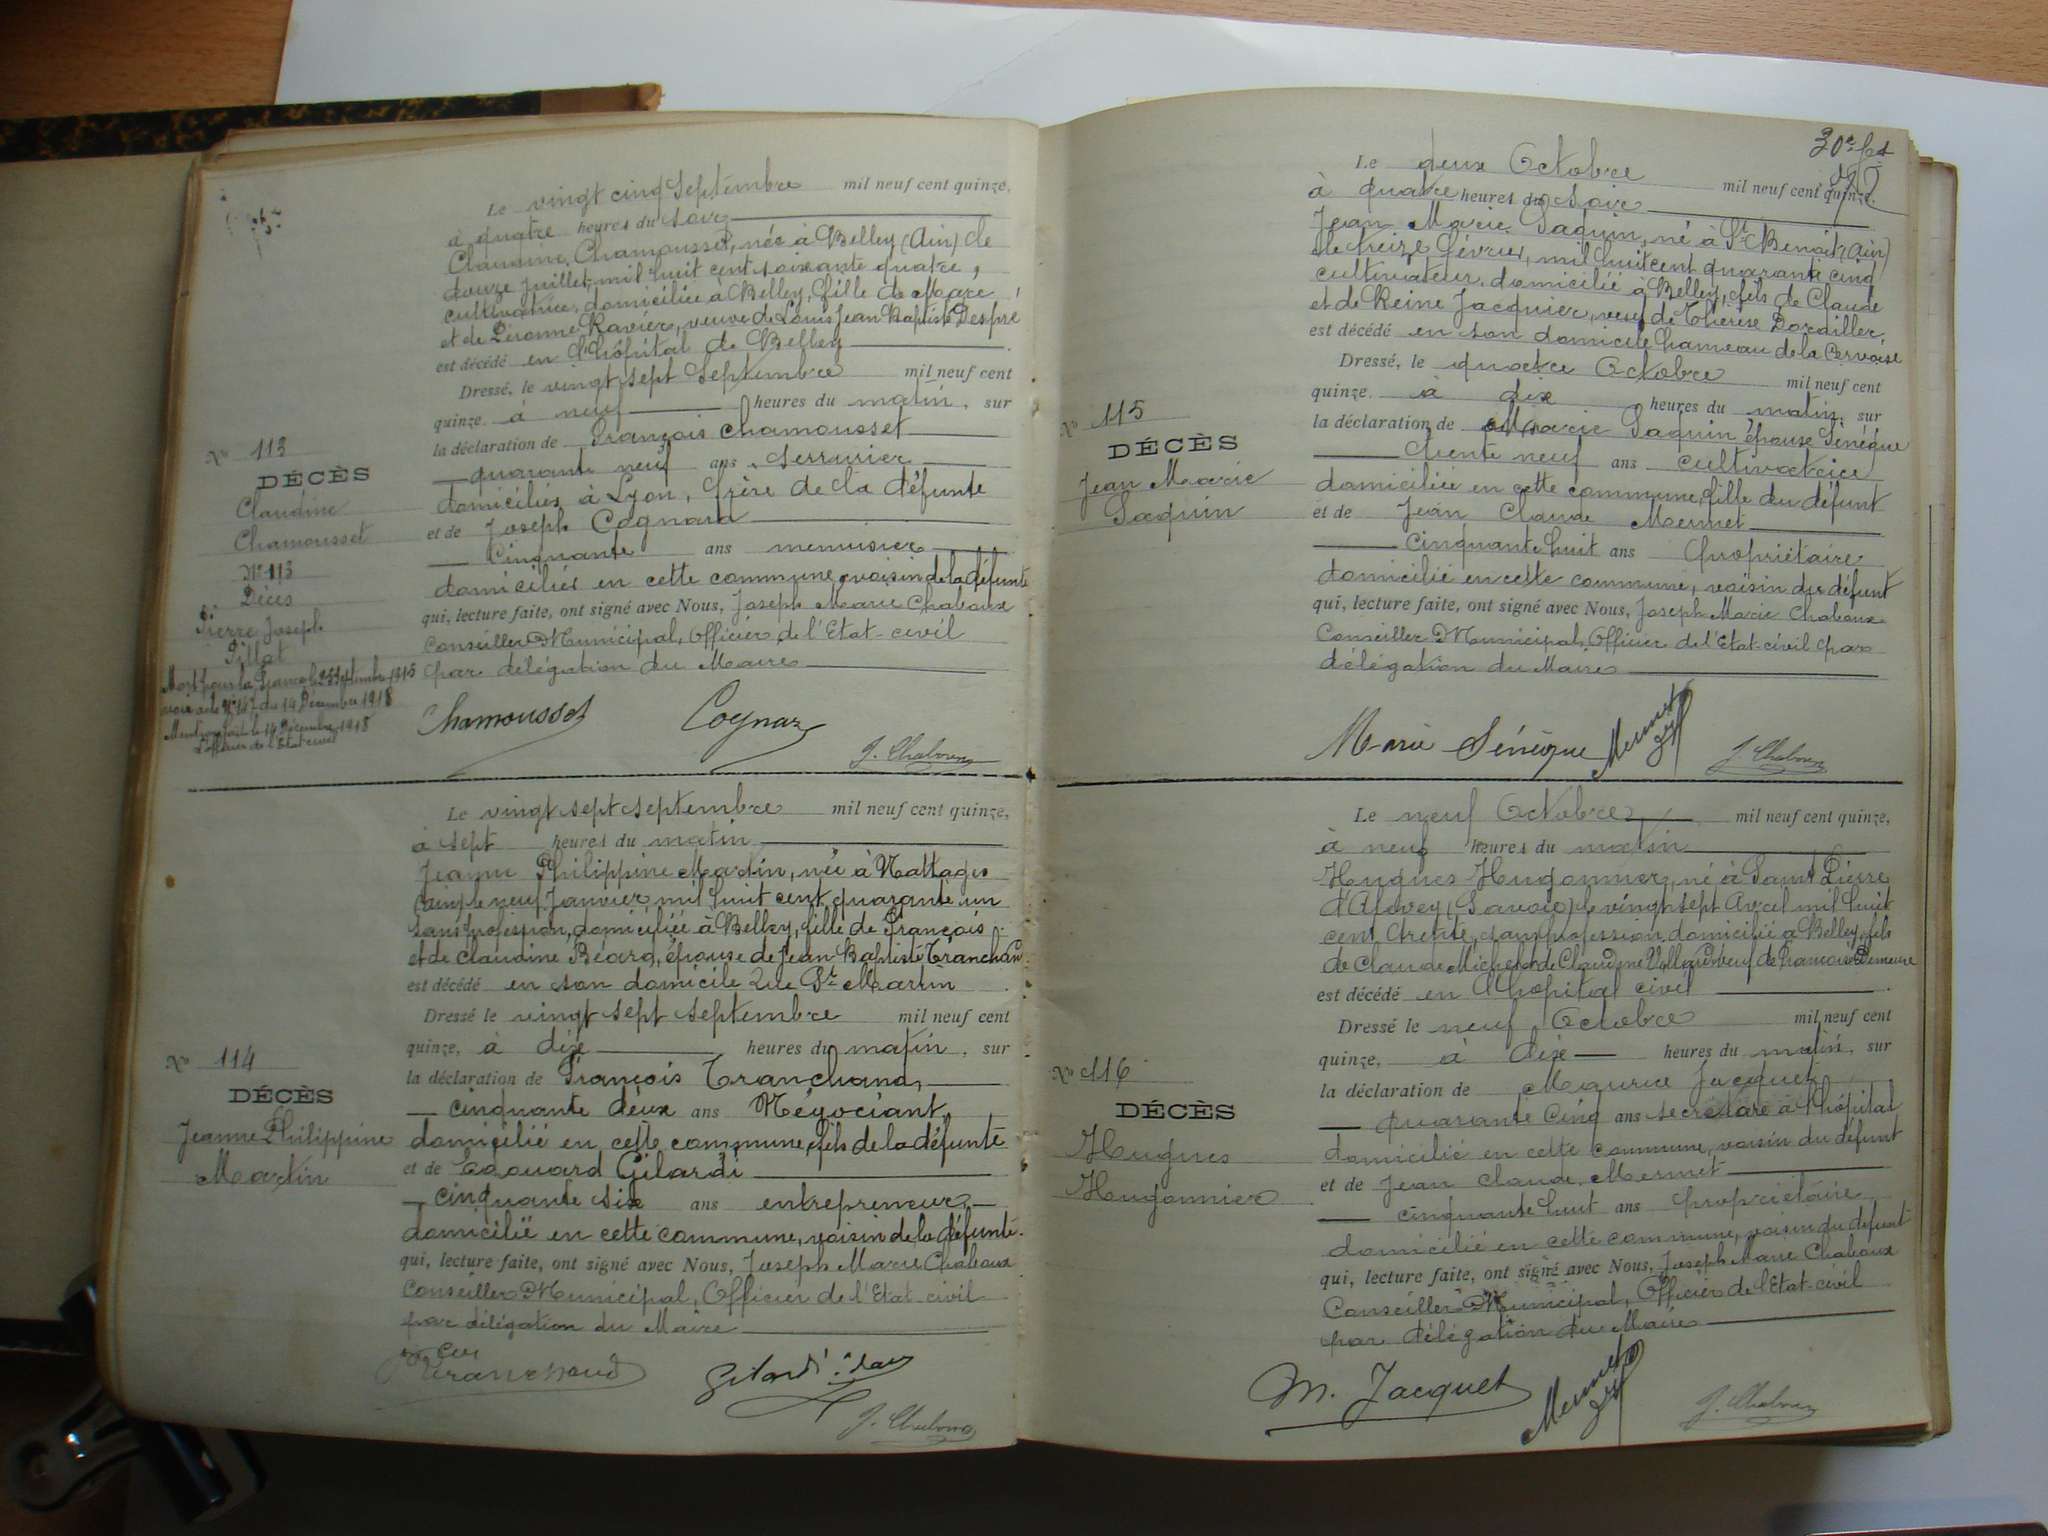 Le vingt cinq Septembre mil neuf cent quinze,
à quatre heures du soir
Claudine Chamousset, née à Belley (Ain) le
douze juillet, mil huit cent soixante quatre,
cultivatrice, domiciliée à Belley, fille de Marc
et de Péronne Ravier, veuve de Louis Jean Baptiste Despré
est décédé en l'hôpital de Belley
Dressé, le vingt sept Septembre mil neuf cent
quinze à neuf heures du matin, sur
la déclaration de François Chamousset
quarante neuf ans serrurier
domiciliés à Lyon, frère de la défunte
et de Joseph Cognard
Cinquante ans menuisier
domiciliés en cette commune voisin de la défunte
qui, lecture faite, ont signé avec Nous, Joseph Marie Chaboux
Conseiller Municipal, Officier de l'Etat-civil
par délégation du Maire
Chamousset Cognar J. Chaboux
N° 113
DÉCÈS
Claudine
Chamousset
N° 113
Décès
Pierre Joseph
Pillat
Mort pour la France le 25 Septembre 1915
voir acte N° 147 du 14 Décembre 1918
Mention faite le 14 Décembre 1918
L'officier de l'Etat civil
Le vingt sept septembre mil neuf cent quinze,
à sept heures du matin
Jeanne Philippine Martin, née à Nattages
Ain, le neuf Janvier mil huit cent quarante un
sans profession, domiciliée à Belley, fille de François
et de Claudine Béard, épouse de Jean Baptiste Tranchand
est décédé en son domicile Rue St Martin
Dressé le vingt sept septembre mil neuf cent
quinze, à dix heures du matin, sur
la déclaration de François Tranchand,
cinquante deux ans Négociant
domicilié en cette commune, fils de la défunte
et de Edouard Gilardi
cinquante six ans entrepreneur
domicilié en cette commune, voisin de la défunte.
qui, lecture faite, ont signé avec Nous, Joseph Marie Chaboux
Conseiller Municipal, Officier de l'Etat civil
par délégation du Maire
Tranchand Gilardi J. Chaboux
N° 114
DÉCÈS
Jeanne Philippine
Martin
30e
Le deux Octobre mil neuf cent quinze.
à quatre heures du soir
Jean Marie Paquin, né à St Benoit (Ain)
le treize février, mil huit cent quarante cinq
cultivateur, domicilié à Belley, fils de Claude
et de Reine Jacquier, veuf de Thérèse Dorailler,
est décédé en son domicile hameau de la Cervoise
Dressé, le quatre Octobre mil neuf cent
quinze. à dix heures du matin, sur
la déclaration de Marie Paquin, épouse Sénèque
trente neuf ans cultivatrice
domiciliée en cette commune, fille du défunt
et de Jean Claude Mermet
cinquante huit ans propriétaire
domicilié en cette commune, voisin du défunt
qui, lecture faite, ont signé avec Nous, Joseph Marie Chaboux
Conseiller Municipal, Officier de l'Etat-civil par
délégation du Maire
Marie Sénèque Mermet J. Chaboux
N° 115
DÉCÈS
Jean Marie
Paquin
Le neuf Octobre mil neuf cent quinze,
à neuf heures du matin
Hugues Hugonnier, né à Saint Pierre
d'Alovey (Savoie) le vingt sept Avril mil huit
cent trente, sans profession domicilié à Belley, fils
de Claude Michel et de Claudine Vollard, veuf de Françoise Demeure
est décédé en l'hôpital civil
Dressé le neuf Octobre mil neuf cent
quinze, à dix heures du matin, sur
la déclaration de Maurice Jacquet
quarante cinq ans secrétaire à l'hôpital
domicilié en cette commune, voisin du défunt
et de Jean Claude Mermet
cinquante huit ans propriétaire
domicilié en cette commune, voisin du défunt
qui, lecture faite, ont signé avec Nous, Joseph Marie Chaboux
Conseiller Municipal, Officier de l'Etat-civil
par délégation du Maire
M. Jacquet Mermet J. Chaboux
N° 116
DÉCÈS
Hugues
Hugonnier